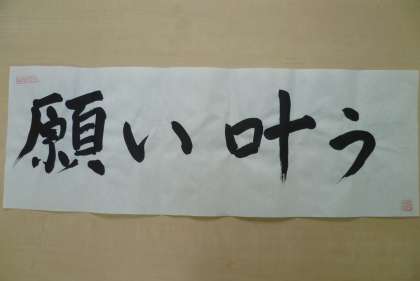 願い叶う